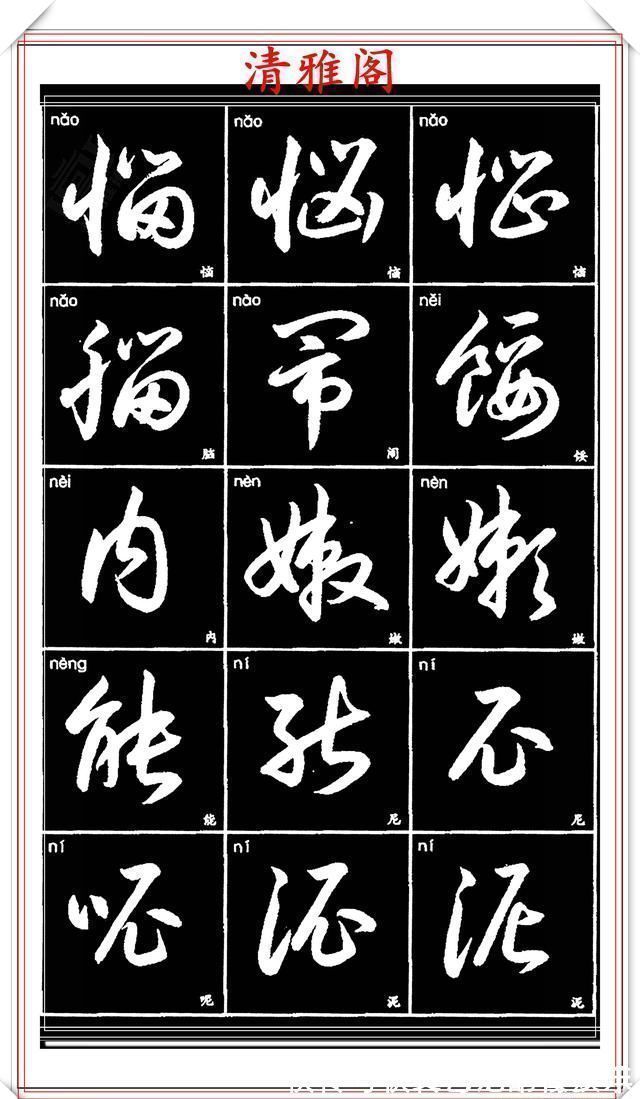 清雅阁
nǎo nǎo nǎo
恼 恼 恼
恼 恼 恼
nǎo nào něi
脑 闹 馁
脑 闹 馁
nèi nèn nèn
内 嫩 嫩
内 嫩 嫩
nèng ní ní
能 能 尼
能 尼 尼
ní ní ní
呢 泥 泥
呢 泥 泥